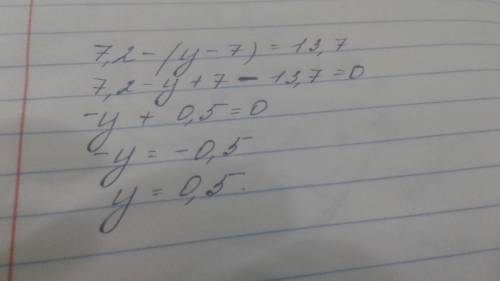 7,2 - (y - 7) = 13,7
7,2 - y + 7 - 13,7 = 0
-y + 0,5 = 0
-y = -0,5
y = 0,5.